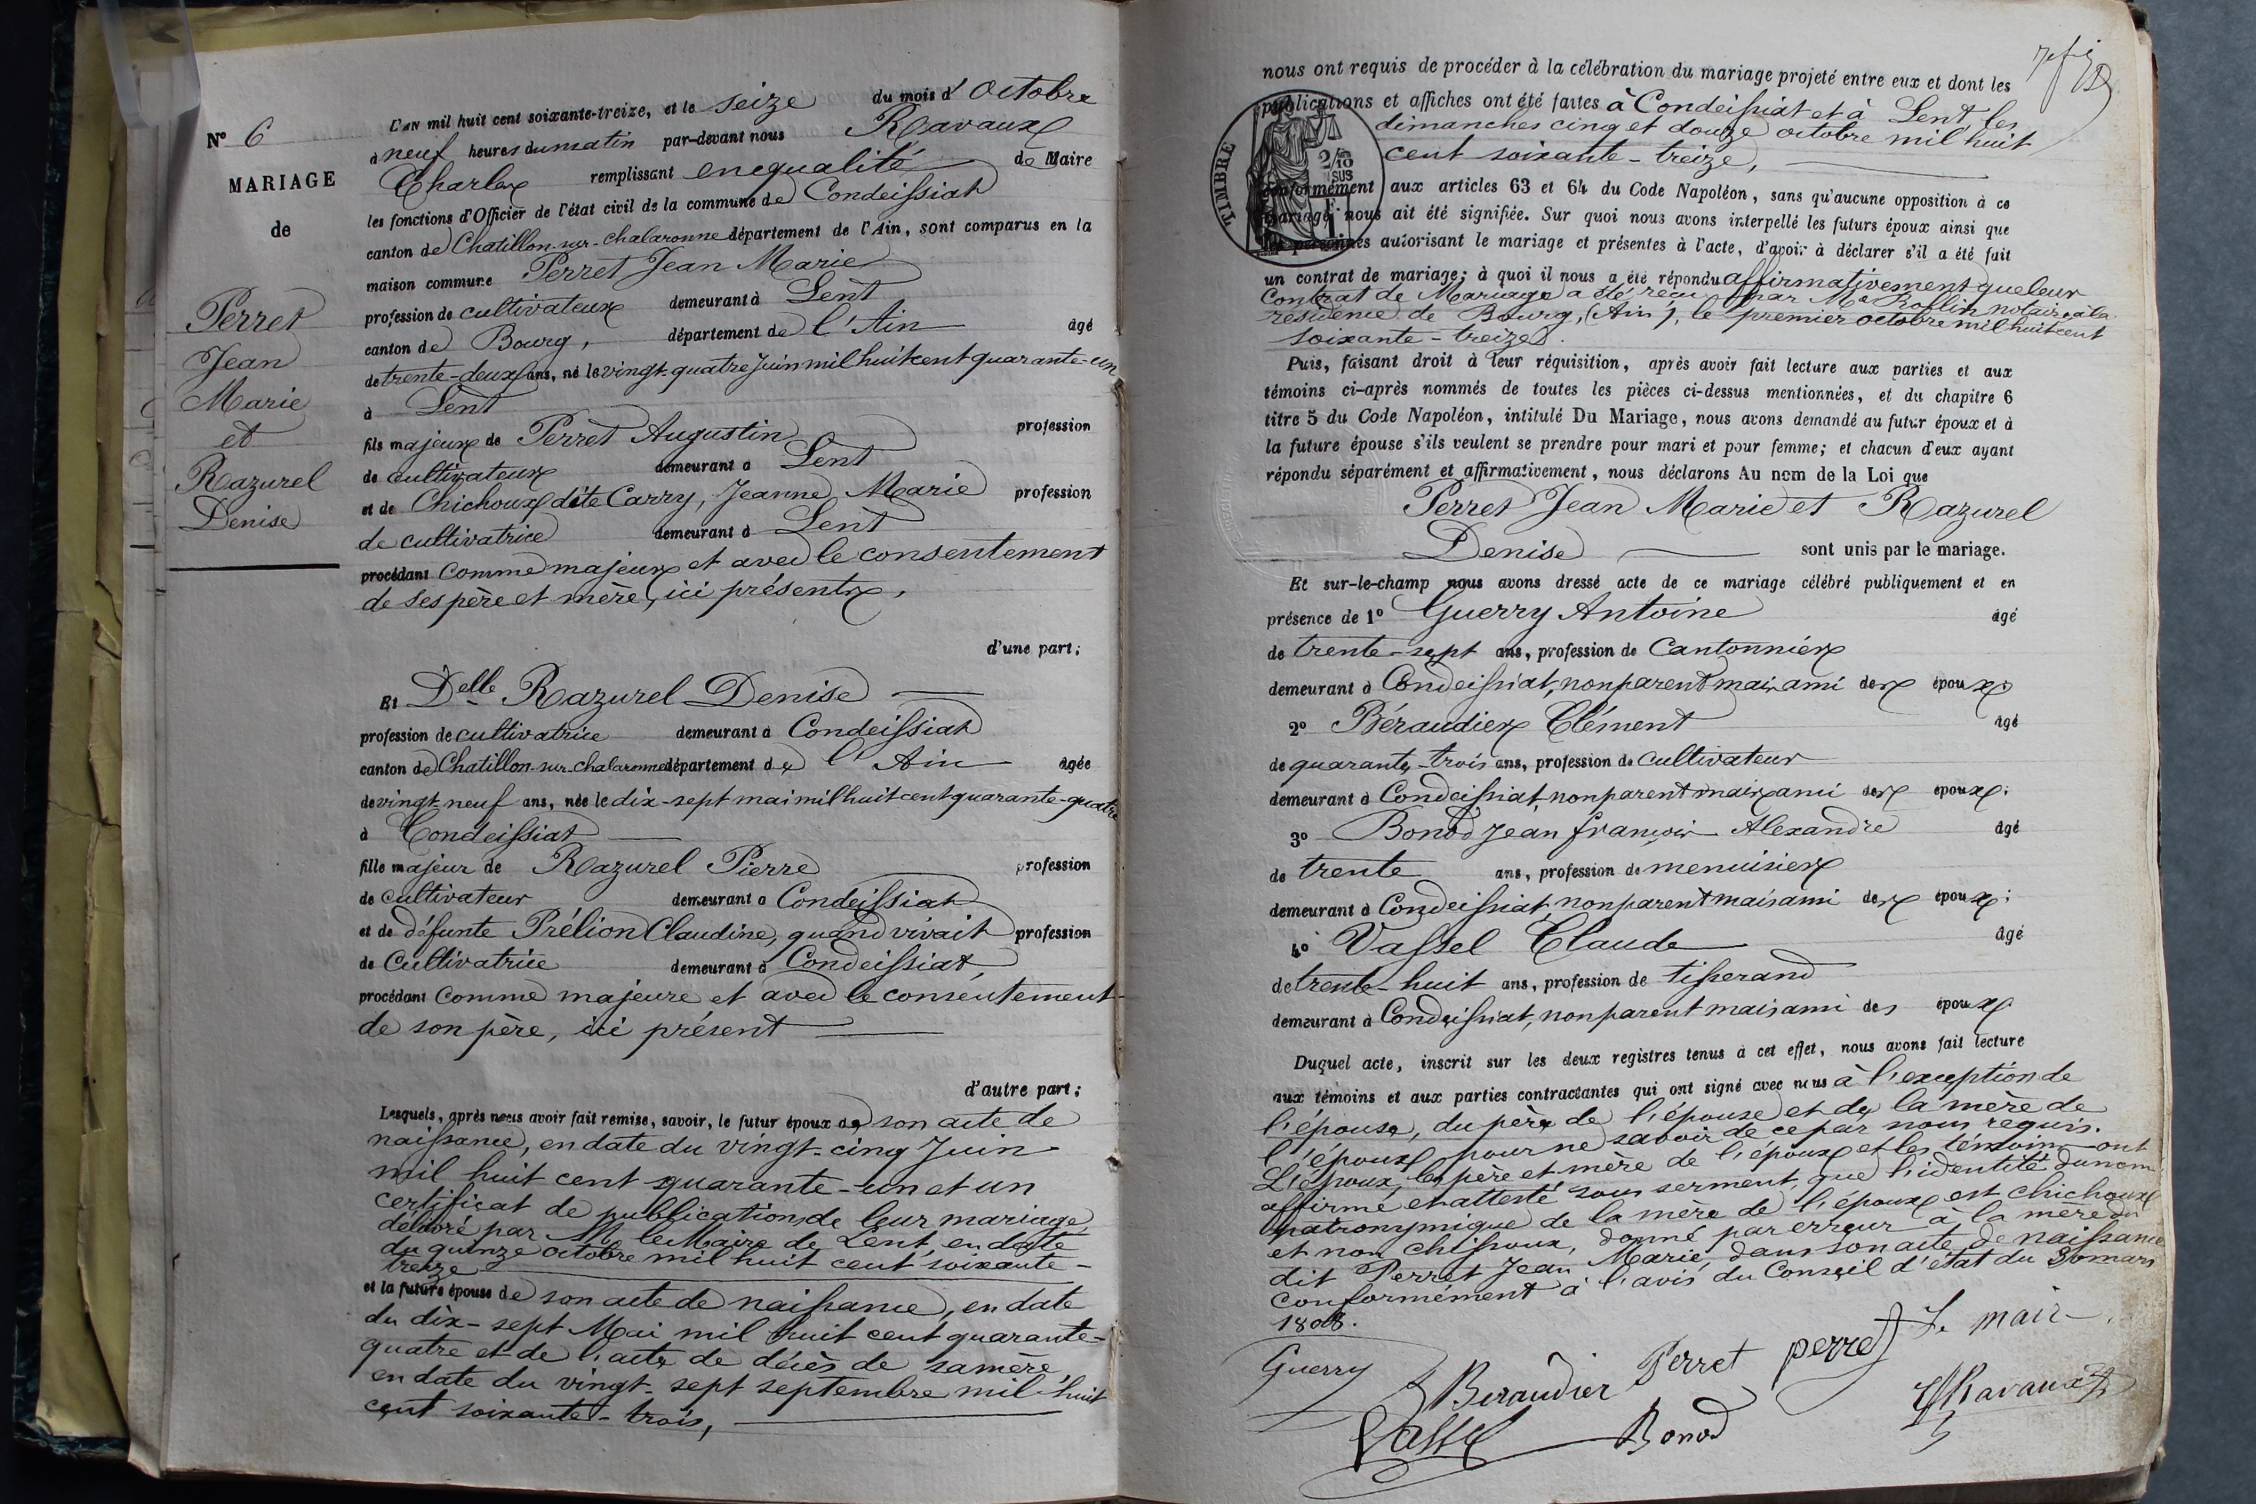 N° 6
MARIAGE
de
Perret
Jean
Marie
et
Razurel
Denise
L'an mil huit cent soixante-treize, et le seize du mois d'octobre
à neuf heures du matin par-devant nous Ravaux
Charles remplissant en qualité de Maire
les fonctions d'Officier de l'état civil de la commune de Condeissiat
canton de Chatillon-sur-chalaronne département de l'Ain, sont comparus en la
maison commune Perret Jean Marie
profession de cultivateur demeurant à Lent
canton de Bourg, département de l'Ain âgé
de trente-deux ans, né le vingt-quatre Juin mil huit cent quarante-un
à Lent
fils majeur de Perret Augustin profession
de cultivateur demeurant à Lent
et de Chichoux dite Carry, Jeanne Marie profession
de cultivatrice demeurant à Lent
procédant comme majeur et avec le consentement
de ses père et mère, ici présents,
d'une part;
Et Delle Razurel Denise
profession de cultivatrice demeurant à Condeissiat
canton de Chatillon-sur-chalaronne département de l'Ain âgée
de vingt-neuf ans, née le dix-sept mai mil huit cent quarante-quatre
à Condeissiat
fille majeur de Razurel Pierre profession
de cultivateur demeurant à Condeissiat
et de défunte Prélion Claudine, quand vivait profession
de Cultivatrice demeurant à Condeissiat,
procédant comme majeure et avec le consentement
de son père, ici présent
d'autre part;
Lesquels, après nous avoir fait remise, savoir, le futur époux de son acte de
naissance, en date du vingt-cinq Juin
mil huit cent quarante-un et un
certificat de publications de leur mariage,
délivré par M. le Maire de Lent, en date
du quinze octobre mil huit cent soixante-
treize
et la future épouse de son acte de naissance, en date
du dix-sept Mai mil huit cent quarante-
quatre et de l'acte de décès de sa mère,
en date du vingt-sept septembre mil huit
cent soixante-trois,
nous ont requis de procéder à la célébration du mariage projeté entre eux et dont les
publications et affiches ont été faites à Condeissiat et à Lent les
dimanches cinq et douze octobre mil huit
cent soixante-treize,
TIMBRE
2/10
SUS
conformément aux articles 63 et 64 du Code Napoléon, sans qu'aucune opposition à ce
mariage nous ait été signifiée. Sur quoi nous avons interpellé les futurs époux ainsi que
les personnes autorisant le mariage et présentes à l'acte, d'avoir à déclarer s'il a été fait
un contrat de mariage; à quoi il nous a été répondu affirmativement que leur
Contrat de Mariage a été reçu par Me Rollin notaire à la
résidence de Bourg, (Ain), le premier octobre mil huit cent
soixante-treize.
Puis, faisant droit à leur réquisition, après avoir fait lecture aux parties et aux
témoins ci-après nommés de toutes les pièces ci-dessus mentionnées, et du chapitre 6
titre 5 du Code Napoléon, intitulé Du Mariage, nous avons demandé au futur époux et à
la future épouse s'ils veulent se prendre pour mari et pour femme; et chacun d'eux ayant
répondu séparément et affirmativement, nous déclarons Au nom de la Loi que
Perret Jean Marie et Razurel
Denise sont unis par le mariage.
Et sur-le-champ nous avons dressé acte de ce mariage célébré publiquement et en
présence de 1° Guerry Antoine âgé
de trente-sept ans, profession de Cantonnier
demeurant à Condeissiat, non parent mais ami des époux;
2° Béraudier Clément âgé
de quarante-trois ans, profession de cultivateur
demeurant à Condeissiat, non parent mais ami des époux;
3° Bonod Jean françois Alexandre âgé
de trente ans, profession de menuisier
demeurant à Condeissiat, non parent mais ami des époux;
4° Vassel Claude âgé
de trente-huit ans, profession de tisserand
demeurant à Condeissiat, non parent mais ami des époux
Duquel acte, inscrit sur les deux registres tenus à cet effet, nous avons fait lecture
aux témoins et aux parties contractantes qui ont signé avec nous à l'exception de
l'épouse, du père de l'épouse et de la mère de
l'époux pour ne savoir de ce par nous requis.
L'époux, les père et mère de l'époux et les témoins ont
affirmé et attesté sous serment que l'identité du nom
patronymique de la mère de l'époux est chichoux
et non chissoux, donné par erreur à la mère du
dit Perret Jean Marie, dans son acte de naissance
conformément à l'avis du Conseil d'état du 30 mars
1808.
Guerry Beraudier Perret perret Le maire
Vassel Bonod Ravaux